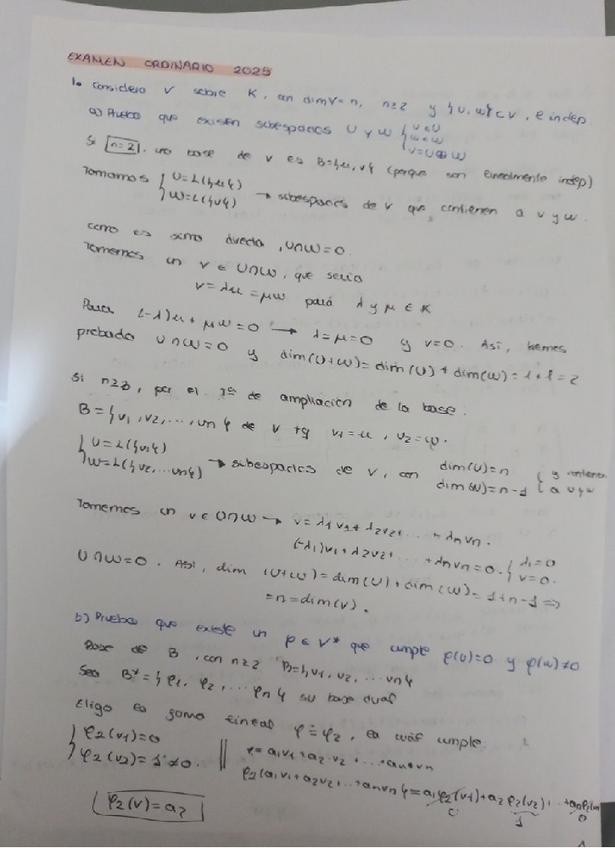 EXAMEN ORDINARIO 2025
1. Considero V sobre K, con dimV=n, n≥2 y {u, w} ⊂ V, e indep
a) Prueba que existen subespacios U y W { u∈U
w∈W
V=U⊕W
Si n=2, una base de V es B={u,v} (porque son linealmente indep)
Tomamos { U=L({u})
W=L({v}) → subespacios de V que contienen a v y w.
como es suma directa, U∩W=0.
Tomemos un v ∈ U∩W, que sería
v=λu=μw para λ y μ ∈ K
Para (-λ)u+μw=0 → λ=μ=0 y v=0. Así, hemos
probado U∩W=0 y dim(U+W)=dim(U)+dim(W)=1+1=2
Si n≥3, por el de ampliación de la base.
B={v1, v2, ..., vn} de V tq v1=u, v2=w.
{ U=L({v1})
W=L({v2, ... vn}) → subespacios de V, con dim(U)=n
dim(W)=n-1 { y contienen
a u y w
Tomemos un v∈U∩W → v=λ1v1+λ2v2+ ... +λnvn.
(-λ1)v1+λ2v2+ ... +λnvn=0. { λ1=0
v=0.
U∩W=0. Así, dim (U+W)=dim(U)+dim(W)=1+n-1 ⇒
=n=dim(V).
b) Prueba que existe un φ ∈ V* que cumple φ(u)=0 y φ(w)≠0
Base de B, con n≥2 B={v1, v2, ... vn}
Sea B*={φ1, φ2, ... φn} su base dual
Eligo la forma lineal φ=φ2, la cual cumple.
{ φ2(v1)=0
φ2(v2)=1≠0. || v=a1v1+a2v2+ ... +anvn
φ2(a1v1+a2v2+ ... +anvn)=a1φ2(v1)+a2φ2(v2)+ ... +anφ2(vn)
0 1 0
φ2(v)=a2